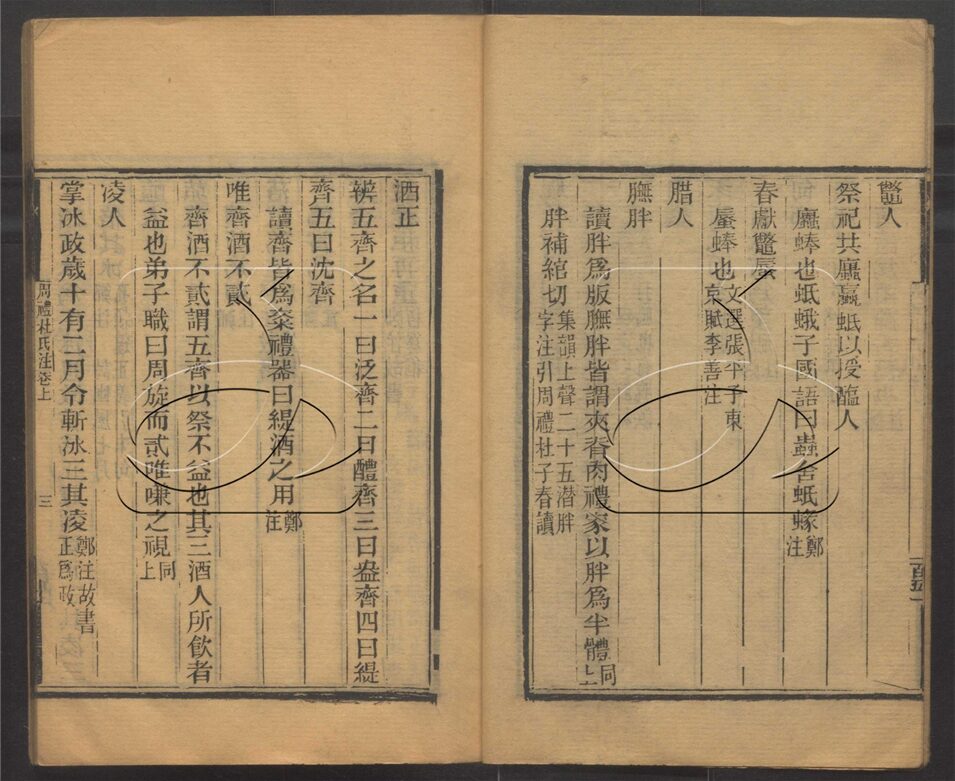 鼈人
祭祀共蠯蠃蚳以授醢人
蠯蜯也蚳蛾子國語曰蟲舍蚳蝝鄭注
春獻鼈蜃
蜃蜯也文選張平子東京賦李善注
腊人
膴胖
讀胖爲版膴胖皆謂夾脊肉禮家以胖爲半體同上
胖補綰切集韻上聲二十五潸胖字注引周禮杜子春讀
酒正
辨五齊之名一曰泛齊二曰醴齊三曰盎齊四曰緹
齊五曰沈齊
讀齊皆爲粢禮器曰緹酒之用鄭注
唯齊酒不貳
齊酒不貳謂五齊以祭不益也其三酒人所飮者
益也弟子職曰周旋而貳唯嗛之視同上
凌人
掌冰政歲十有二月令斬冰三其凌鄭注故書正爲政
周禮杜氏注卷上
三